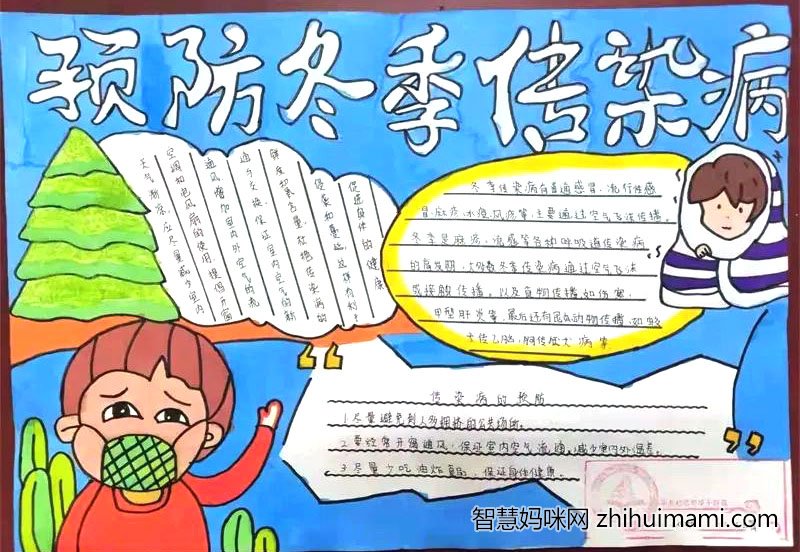 预防冬季传染病
天气渐凉,应尽量减少室内
空调和电风扇的使用,提倡开窗
通风,增加室内外空气的流
通与交换,保证室内空气的新
鲜度和氧含量,杜绝传染病的
侵袭和蔓延,这样有利于
促进身体的健康
冬季传染病有普通感冒、流行性感
冒、麻疹、水痘、风疹等,主要通过空气飞沫传播。
冬季是麻疹、流感等各种呼吸道传染病
的高发期,大多数冬季传染病通过空气飞沫
或接触传播,以及食物传播,如伤寒、
甲型肝炎等,最后还有昆虫动物传播,如蚊
虫传乙脑,狗传狂犬病等
传染病的预防
1.尽量避免到人多拥挤的公共场所。
2.要经常开窗通风,保证室内空气流通,减少室内外温差。
3.尽量少吃油炸食品,保证身体健康。
智慧妈咪网 zhihuimami.com